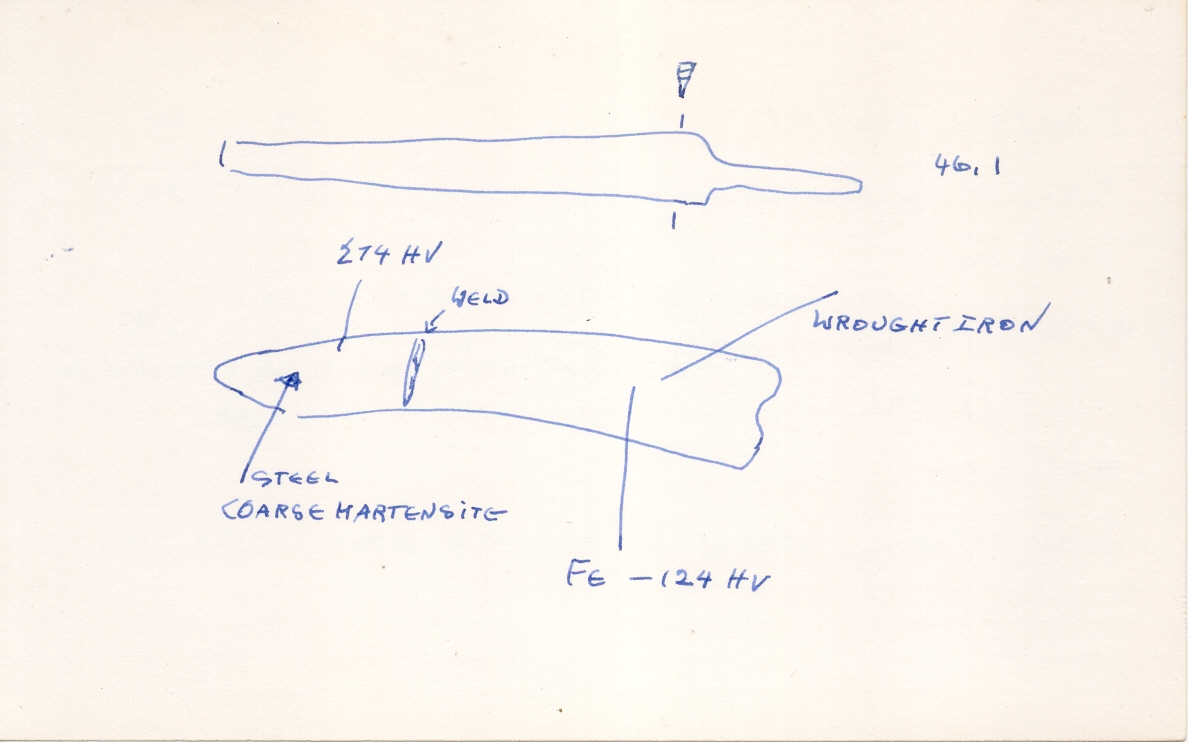 46.1
274 HV
WELD
WROUGHT IRON
STEEL
COARSE MARTENSITE
Fe - 124 HV